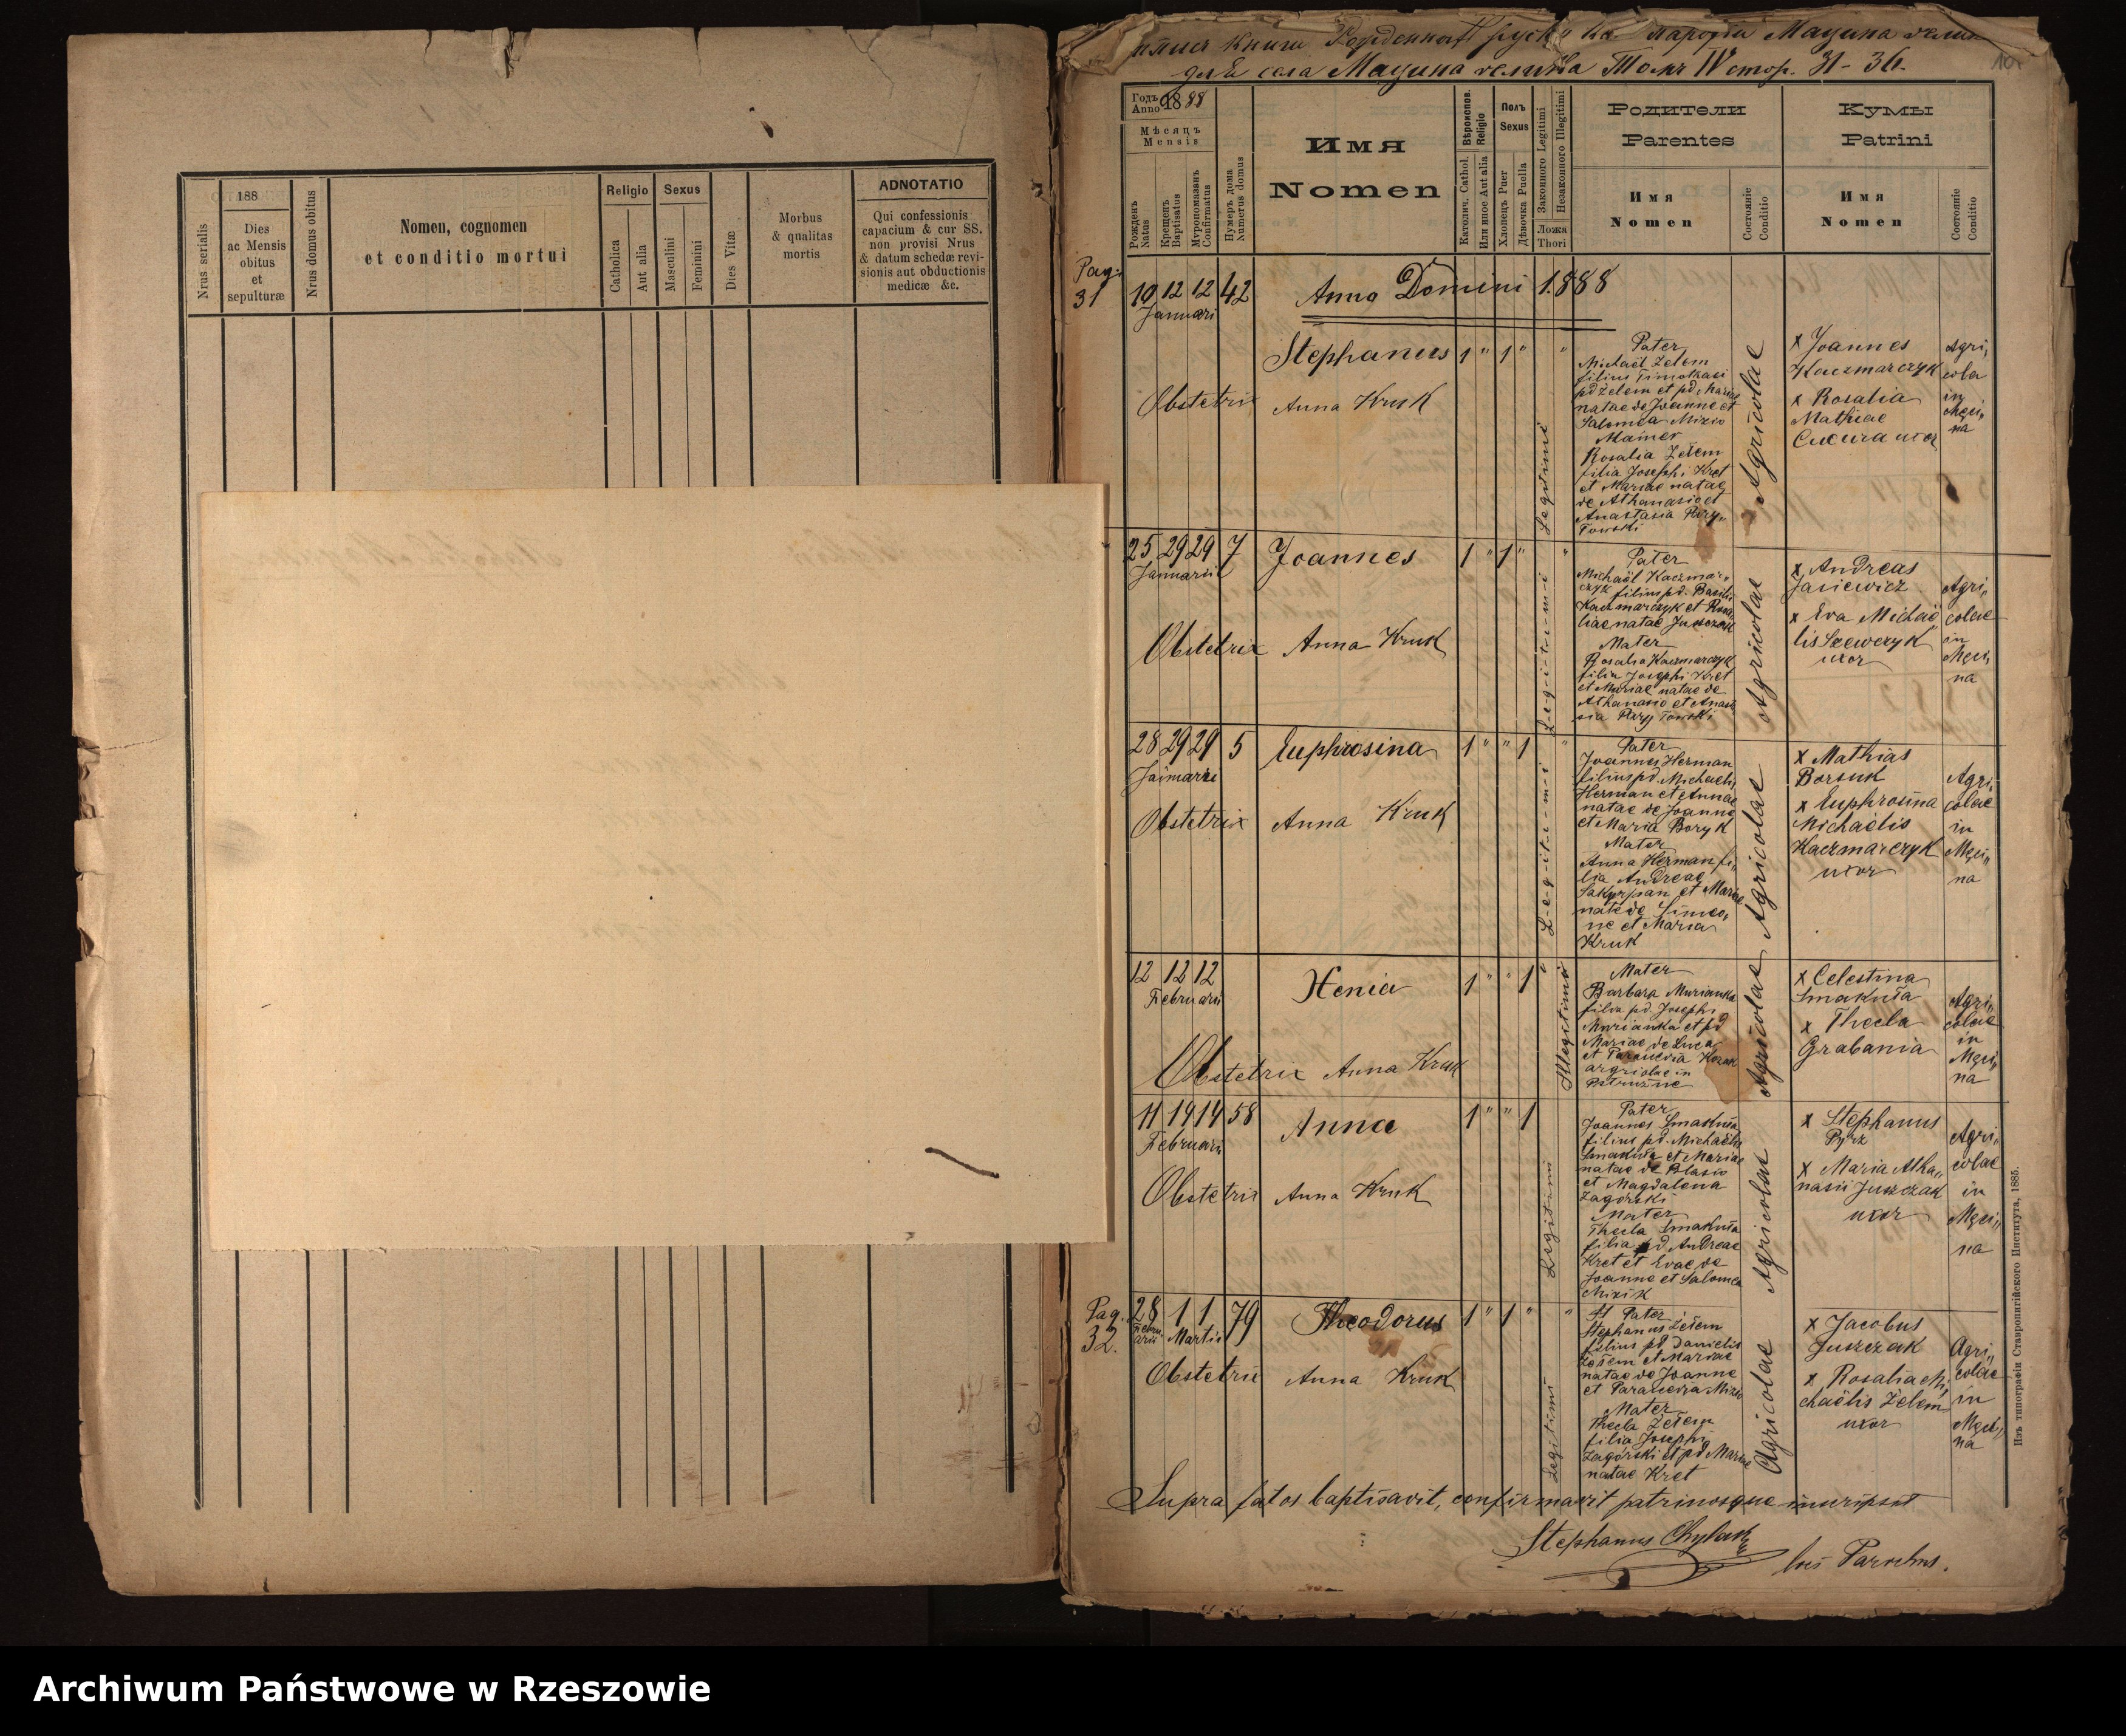 Nrus serialis
188
Dies
ac Mensis
obitus
et
sepulturæ
Nrus domus obitus
Nomen, cognomen
et conditio mortui
Religio
Catholica
Aut alia
Sexus
Masculini
Feminini
Dies Vitæ
Morbus
& qualitas
mortis
ADNOTATIO
Qui confessionis
capacium & cur SS.
non provisi Nrus
& datum schedæ revi-
sionis aut obductionis
medicæ &c.
книги
села Мацина Томъ IV стор. 31-36.
Годъ
Anno 1888
Мѣсяцъ
Mensis
Рожденъ
Natus
Крещенъ
Baptisatus
Муропомазанъ
Confirmatus
Нумеръ дома
Numerus domus
Имя
Nomen
Вѣроисповѣд.
Religio
Католич. Cathol.
Или иное Aut alia
Полъ
Sexus
Хлопецъ Puer
Дѣвочка Puella
Законного Legitimi
Незаконного Illegitimi
Ложа
Thori
Родители
Parentes
Имя
Nomen
Состояніе
Conditio
Кумы
Patrini
Имя
Nomen
Состояніе
Conditio
Pag.
31
10 12 12 42 Anno Domini 1888
Januari
Stephanus 1 " 1 " "
Obstetrix Anna Kruk
Legitimi
Pater
Michaël Żełem
filius Timothaei
pd Żelem et pd. Mariae
natae de Joanne et
Salomea Mizio
Mater
Rosalia Żełem
filia Josephi Kret
et Mariae natae
de Athanasio et
Anastasia Pary„
łowski
Agricolae
x Joannes
Kaczmarczyk
x Rosalia
Mathiae
uxor
Agri„
cola
in
Męci„
na
25 29 29 7 Joannes 1 " 1 " "
Januarii
Obstetrix Anna Kruk
Legitimi
Pater
Michaël Kaczmar„
czyk filius pd. Basilii
Kaczmarczyk et Rosa„
liae natae Juszczak
Mater
Rosalia Kaczmarczyk
filia Josephi Kret
et Mariae natae de
Athanasio et Anasta
sia Pary łowski
Agricolae
x Andreas
Jasiewicz
x Eva Michaë„
lis Szewczyk
uxor
Agri„
colae
in
Męci„
na
28 29 29 5 Euphrosina 1 " " 1 "
Januarii
Obstetrix Anna Kruk
Legitimi
Pater
Joannes Herman
filius pd. Michaelis
Herman et Annae
natae de Joanne
et Maria Boryk
Mater
Anna Herman fi„
lia Andreae
et Mariae
natae de Simeo„
ne et Maria
Kruk
Agricolae
x Mathias
Borsuk
x Euphrosina
Michaëlis
Kaczmarczyk
uxor
Agri„
colae
in
Męci„
na
12 12 12 Xenia 1 " " 1 "
Februarii
Obstetrix Anna Kruk
Illegitimi
Mater
Barbara Murianka
filia pd. Josephi
Murianka et pd
Mariae de Luca
et Parascevia Kozak
agricolae in
Agricolae
x Celestina
Smakuła
x Thecla
Grabania
Agri„
colae
in
Męci„
na
11 14 14 58 Anna 1 " " 1
Februarii
Obstetrix Anna Kruk
Legitimi
Pater
Joannes Smakuła
filius pd. Michaëlis
Smakuła et Mariae
natae de Blasio
et Magdalena
Zagórski
Mater
Thecla Smakuła
filia pd Andreae
Kret et Evae de
Joanne et Salomea
Mizik
Agricolae
x Stephanus
Pyrz
x Maria Atha„
nasii Juszczak
uxor
Agri„
colae
in
Męci„
na
Pag.
32.
28 1 1 79 Theodorus 1 " 1 " "
Febru„
arii Martii
Obstetrix Anna Kruk
Legitimi
Pater
Stephanus Żełem
filius pd Danielis
Żełem et Mariae
natae de Joanne
et Parascevia Mizio
Mater
Thecla Żełem
filia Josephi
Zagórski et pd Mariae
natae Kret
Agricolae
x Jacobus
Juszczak
x Rosalia Mi„
chaëlis Żelem
uxor
Agri„
colae
in
Męci„
na
Supra fatos baptisavit, confirmavit patrinosque inscripsit
Stephanus Chylak
loci Parochus.
Изъ типографіи Ставропигійского Института, 1885.
Archiwum Państwowe w Rzeszowie